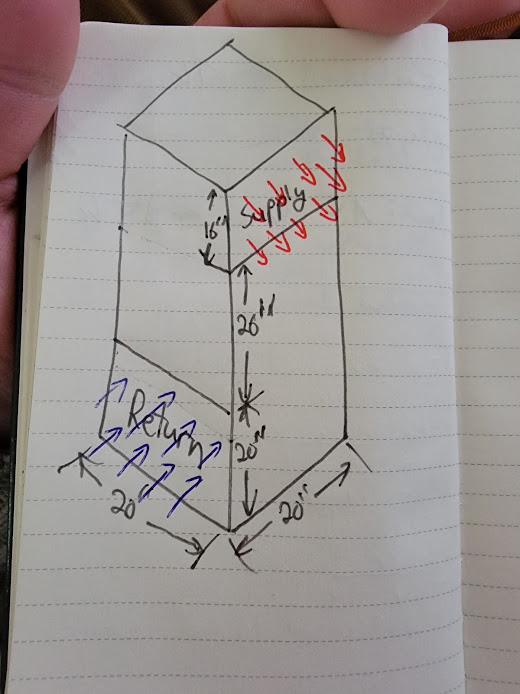 16"
Supply
20"
Return
20"
20"
20"